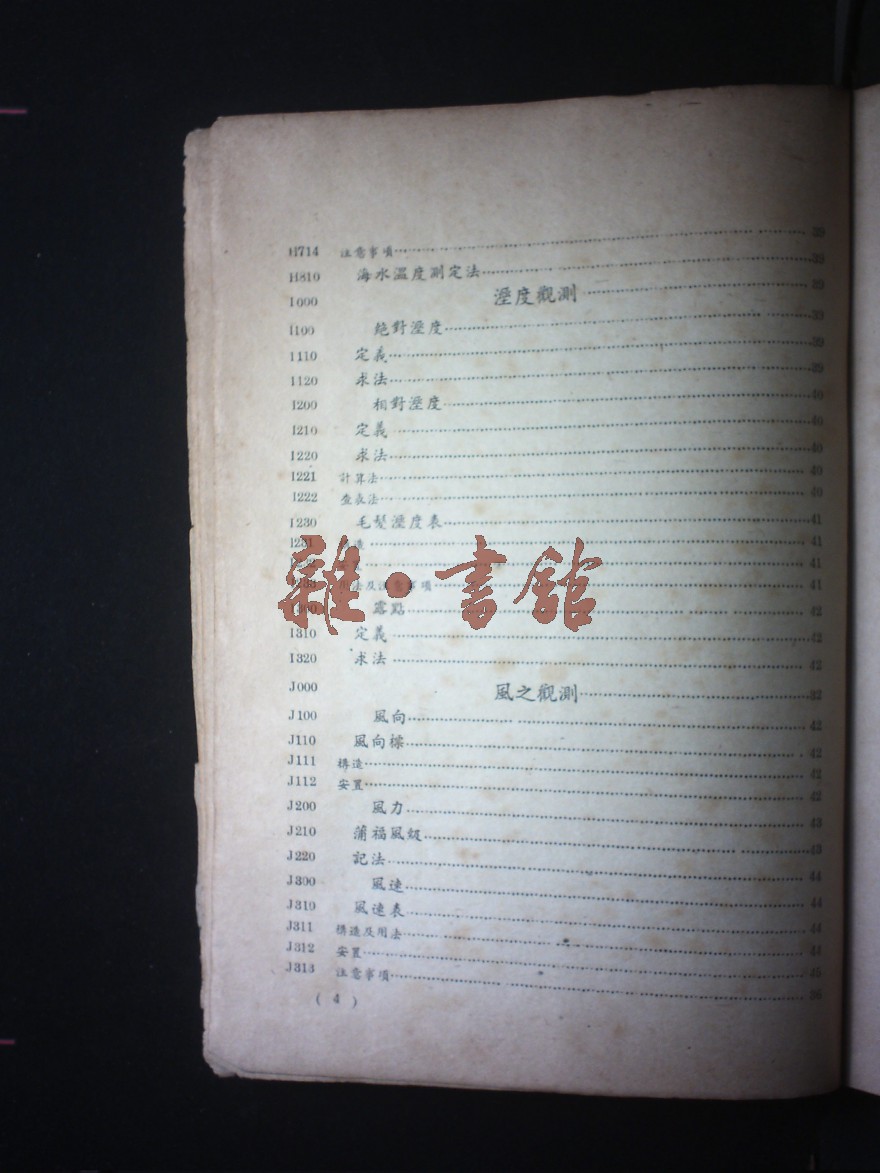 H714 注意事項 39
H810 海水溫度測定法 39
I000 溼度觀測 39
I100 絕對溼度 39
I110 定義 39
I120 求法 39
I200 相對溼度 40
I210 定義 40
I220 求法 40
I221 計算法 40
I222 查表法 40
I230 毛髮溼度表 41
I231 造 41
I232 安置 41
I233 用法及注意事項 41
雜·書館
I300 露點 42
I310 定義 42
I320 求法 42
J000 風之觀測 32
J100 風向 42
J110 風向標 42
J111 構造 42
J112 安置 42
J200 風力 43
J210 蒲福風級 43
J220 記法 44
J300 風速 44
J310 風速表 44
J311 構造及用法 44
J312 安置 45
J313 注意事項 36
( 4 )